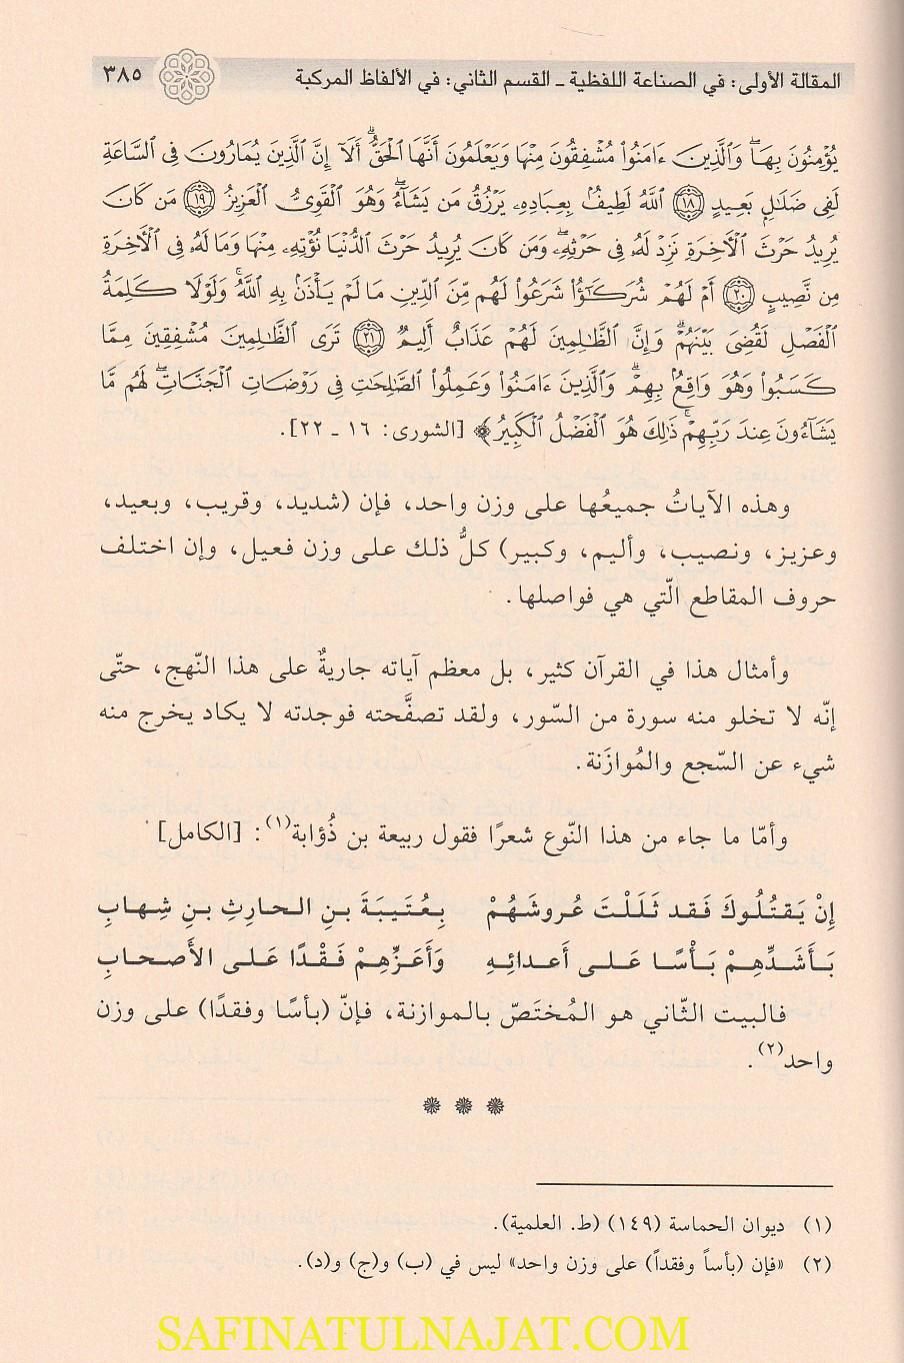 المقالة الأولى: في الصناعة اللفظية - القسم الثاني: في الألفاظ المركبة ٣٨٥
يُؤْمِنُونَ بِهَاۖ وَٱلَّذِينَ ءَامَنُواْ مُشْفِقُونَ مِنْهَا وَيَعْلَمُونَ أَنَّهَا ٱلْحَقُّۗ أَلَآ إِنَّ ٱلَّذِينَ يُمَارُونَ فِى ٱلسَّاعَةِ
لَفِى ضَلَٰلٍۭ بَعِيدٍ ۝١٨ ٱللَّهُ لَطِيفُۢ بِعِبَادِهِۦ يَرْزُقُ مَن يَشَآءُۖ وَهُوَ ٱلْقَوِىُّ ٱلْعَزِيزُ ۝١٩ مَن كَانَ
يُرِيدُ حَرْثَ ٱلْأٓخِرَةِ نَزِدْ لَهُۥ فِى حَرْثِهِۦۖ وَمَن كَانَ يُرِيدُ حَرْثَ ٱلدُّنْيَا نُؤْتِهِۦ مِنْهَا وَمَا لَهُۥ فِى ٱلْأٓخِرَةِ
مِن نَّصِيبٍ ۝٢٠ أَمْ لَهُمْ شُرَكَٰٓؤُاْ شَرَعُواْ لَهُم مِّنَ ٱلدِّينِ مَا لَمْ يَأْذَنۢ بِهِ ٱللَّهُۚ وَلَوْلَا كَلِمَةُ
ٱلْفَصْلِ لَقُضِىَ بَيْنَهُمْۗ وَإِنَّ ٱلظَّٰلِمِينَ لَهُمْ عَذَابٌ أَلِيمٌ ۝٢١ تَرَى ٱلظَّٰلِمِينَ مُشْفِقِينَ مِمَّا
كَسَبُواْ وَهُوَ وَاقِعُۢ بِهِمْۗ وَٱلَّذِينَ ءَامَنُواْ وَعَمِلُواْ ٱلصَّٰلِحَٰتِ فِى رَوْضَاتِ ٱلْجَنَّاتِۖ لَهُم مَّا
يَشَآءُونَ عِندَ رَبِّهِمْۚ ذَٰلِكَ هُوَ ٱلْفَضْلُ ٱلْكَبِيرُ﴾ [الشورى: ١٦ - ٢٢].
وهذه الآياتُ جميعُها على وزن واحد، فإن (شديد، وقريب، وبعيد،
وعزيز، ونصيب، وأليم، وكبير) كلُّ ذلك على وزن فعيل، وإن اختلف
حروف المقاطع الّتي هي فواصلها.
وأمثال هذا في القرآن كثير، بل معظم آياته جاريةٌ على هذا النّهج، حتّى
إنّه لا تخلو منه سورة من السّور، ولقد تصفَّحته فوجدته لا يكاد يخرج منه
شيء عن السّجع والمُوازَنة.
وأمّا ما جاء من هذا النّوع شعرًا فقول ربيعة بن ذُؤابة(١): [الكامل]
إِنْ يَقتُلُوكَ فَقد ثَلَلْتَ عُروشَهُمْ بِعُتَيبَةَ بنِ الحارِثِ بنِ شِهابِ
بَأَشَدِّهِمْ بَأْسًا عَلى أَعدائِهِ وَأَعَزِّهِمْ فَقْدًا عَلى الأَصحابِ
فالبيت الثّاني هو المُختَصّ بالموازنة، فإنّ (بأسًا وفقدًا) على وزن
واحد(٢).
(١) ديوان الحماسة (١٤٩) (ط. العلمية).
(٢) «فإن (بأساً وفقداً) على وزن واحد» ليس في (ب) و(ج) و(د).
SAFINATULNAJAT.COM